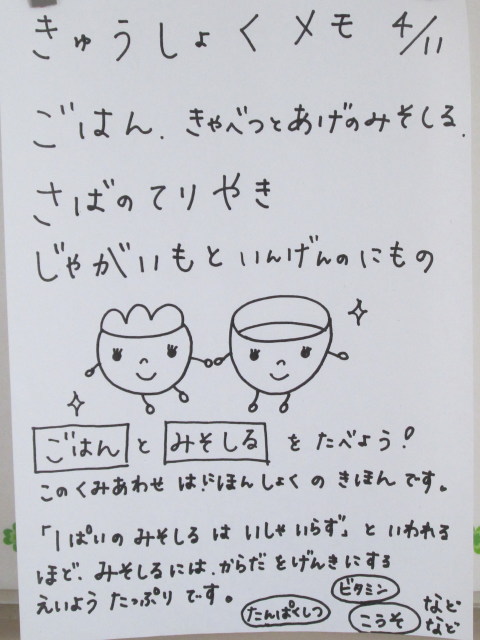 きゅうしょくメモ 4/11
ごはん、きゃべつとあげのみそしる、
さばのてりやき
じゃがいもといんげんのにもの
ごはん と みそしる を たべよう!
このくみあわせ は、にほんしょく の きほん です。
「1ぱいの みそしる は いしゃいらず」と いわれる
ほど、みそしるには、からだ を げんき に する
えいよう たっぷり です。
たんぱくしつ ビタミン こうそ などなど